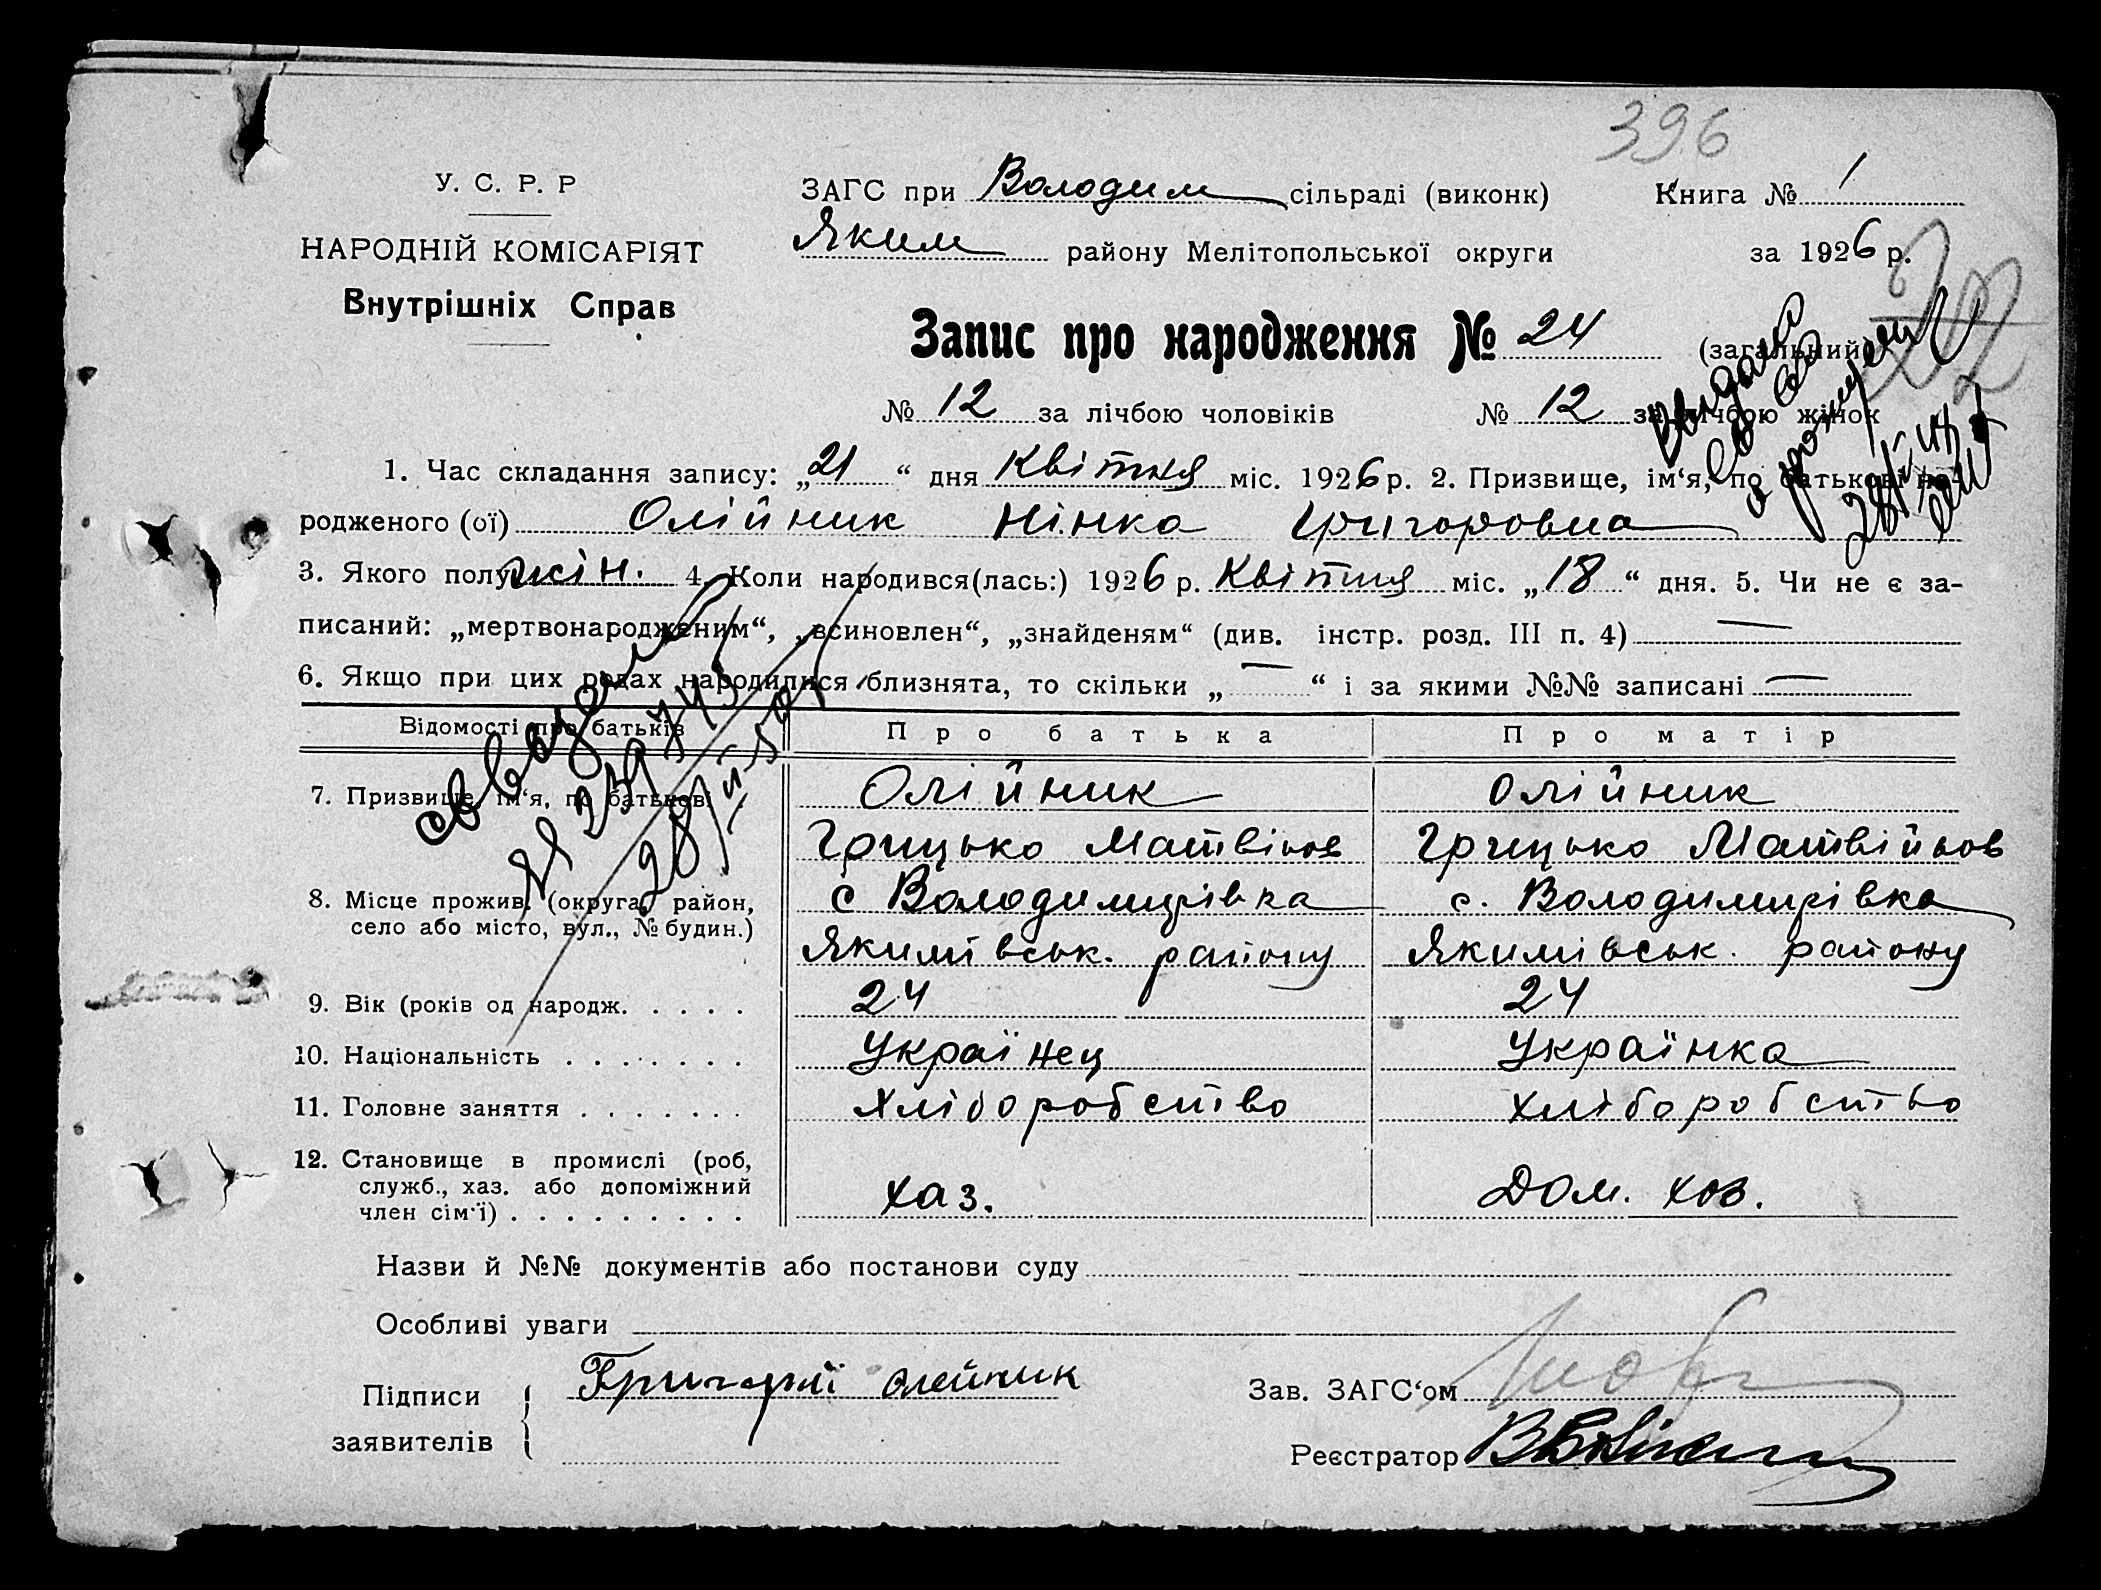 396
У. С. Р. Р
ЗАГС при Володим сільраді (виконк)
Книга № 1
НАРОДНІЙ КОМІСАРІЯТ
Яким району Мелітопольської округи
за 1926 р.
Внутрішніх Справ
Запис про народження № 24 (загальний)
№ 12 за лічбою чоловіків № 12 за лічбою жінок
1. Час складання запису: „21“ дня Квітня міс. 1926 р. 2. Призвище, ім‘я, по батькові на-
родженого (ої) Олійник Нінка Григоровна
3. Якого полу жін. 4. Коли народився(лась:) 1926 р. Квітня міс. „18“ дня. 5. Чи не є за-
писаний: „мертвонародженим“, „всиновлен“, „знайденям“ (див. інстр. розд. III п. 4) —
6. Якщо при цих родах народилися близнята, то скільки „—“ і за якими №№ записані —
Видано
св во
о рожден
Відомості про батьків
Про батька
Про матір
7. Призвище, ім‘я, по батькові
Олійник
Олійник
Грицько Матвіьов
Грицько Матвійьов
8. Місце прожив. (округа, район,
село або місто, вул., № будин.)
с Володимирівка
с. Володимирівка
Якимівськ. району
Якимівськ. району
9. Вік (років од народж. . . . .
24
24
10. Національність . . . . . . .
Українец
Українка
11. Головне заняття . . . . . . .
Хліборобство
Хліборобство
12. Становище в промислі (роб,
служб., хаз. або допоміжний
член сім‘ї) . . . . . . . . .
хаз.
Дом. хоз.
Назви й №№ документів або постанови суду
Особливі уваги
Підписи
заявителів
Григорій Олейник
Зав. ЗАГС‘ом
Реєстратор